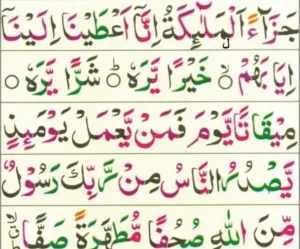 جَزَآءً اَلْمَلٰٓئِكَةُ اِنَّاۤ اَعْطَيْنَا اِلَيْنَاۤ
اِيَابَهُمْ ۙ خَيْرًا يَّرَهٗ ؕ شَرًّا يَّرَهٗ ۝
مِيْقَاتًا يَّوْمَ فَمَنْ يَّعْمَلْ يَوْمَئِذٍ
يَّصْدُرُ النَّاسُ مِنْ رَّبِّكَ رَسُوْلٌ
مِّنَ اللّٰهِ صُحُفًا مُّطَهَّرَةً صَفًّا صَفًّا ۙ